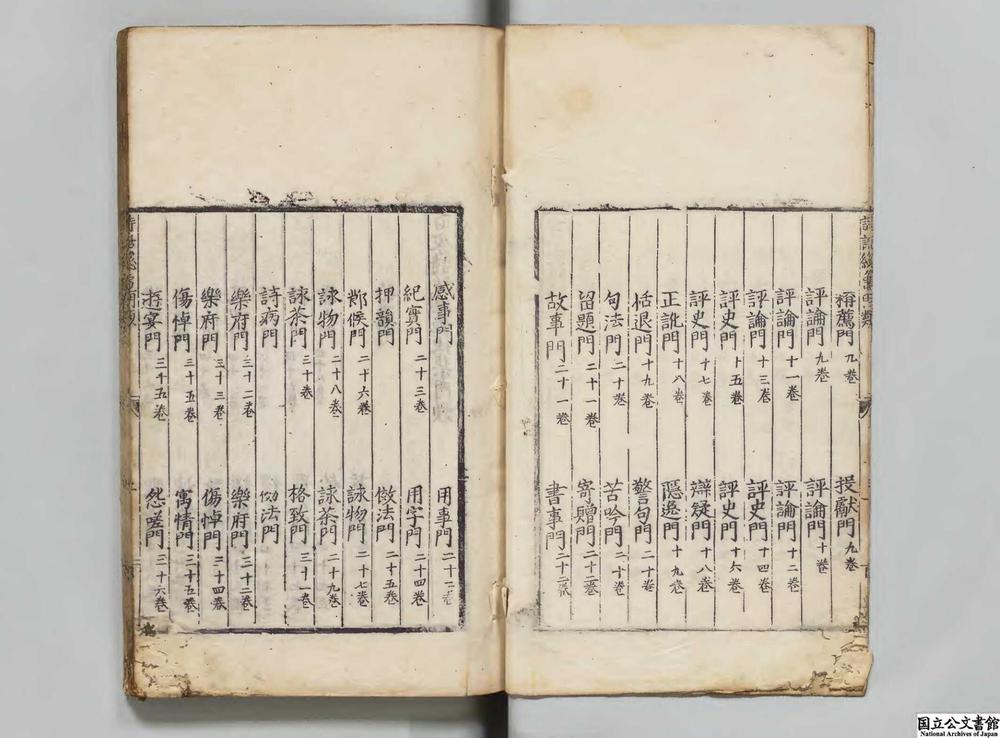 稱薦門 九卷 投獻門 九卷
評論門 九卷 評論門 十卷
評論門 十一卷 評論門 十二卷
評論門 十三卷 評史門 十四卷
評史門 十五卷 評史門 十六卷
評史門 十七卷 辯疑門 十八卷
正訛門 十八卷 隱逸門 十九卷
恬退門 十九卷 警句門 二十卷
句法門 二十卷 苦吟門 二十卷
留題門 二十一卷 寄贈門 二十二卷
故事門 二十一卷 書事門 二十二卷
感事門 用事門
紀實門 二十三卷 用字門 二十四卷
押韻門 傚法門 二十五卷
節候門 二十六卷 詠物門 二十七卷
詠物門 二十八卷 詠茶門 二十九卷
詠茶門 三十卷 格致門 三十一卷
詩病門 法門
樂府門 三十二卷 樂府門 三十二卷
樂府門 三十三卷 傷悼門 三十四卷
傷悼門 三十五卷 寓情門 三十五卷
遊宴門 三十五卷 怨嗟門 三十六卷
国立公文書館
National Archives of Japan